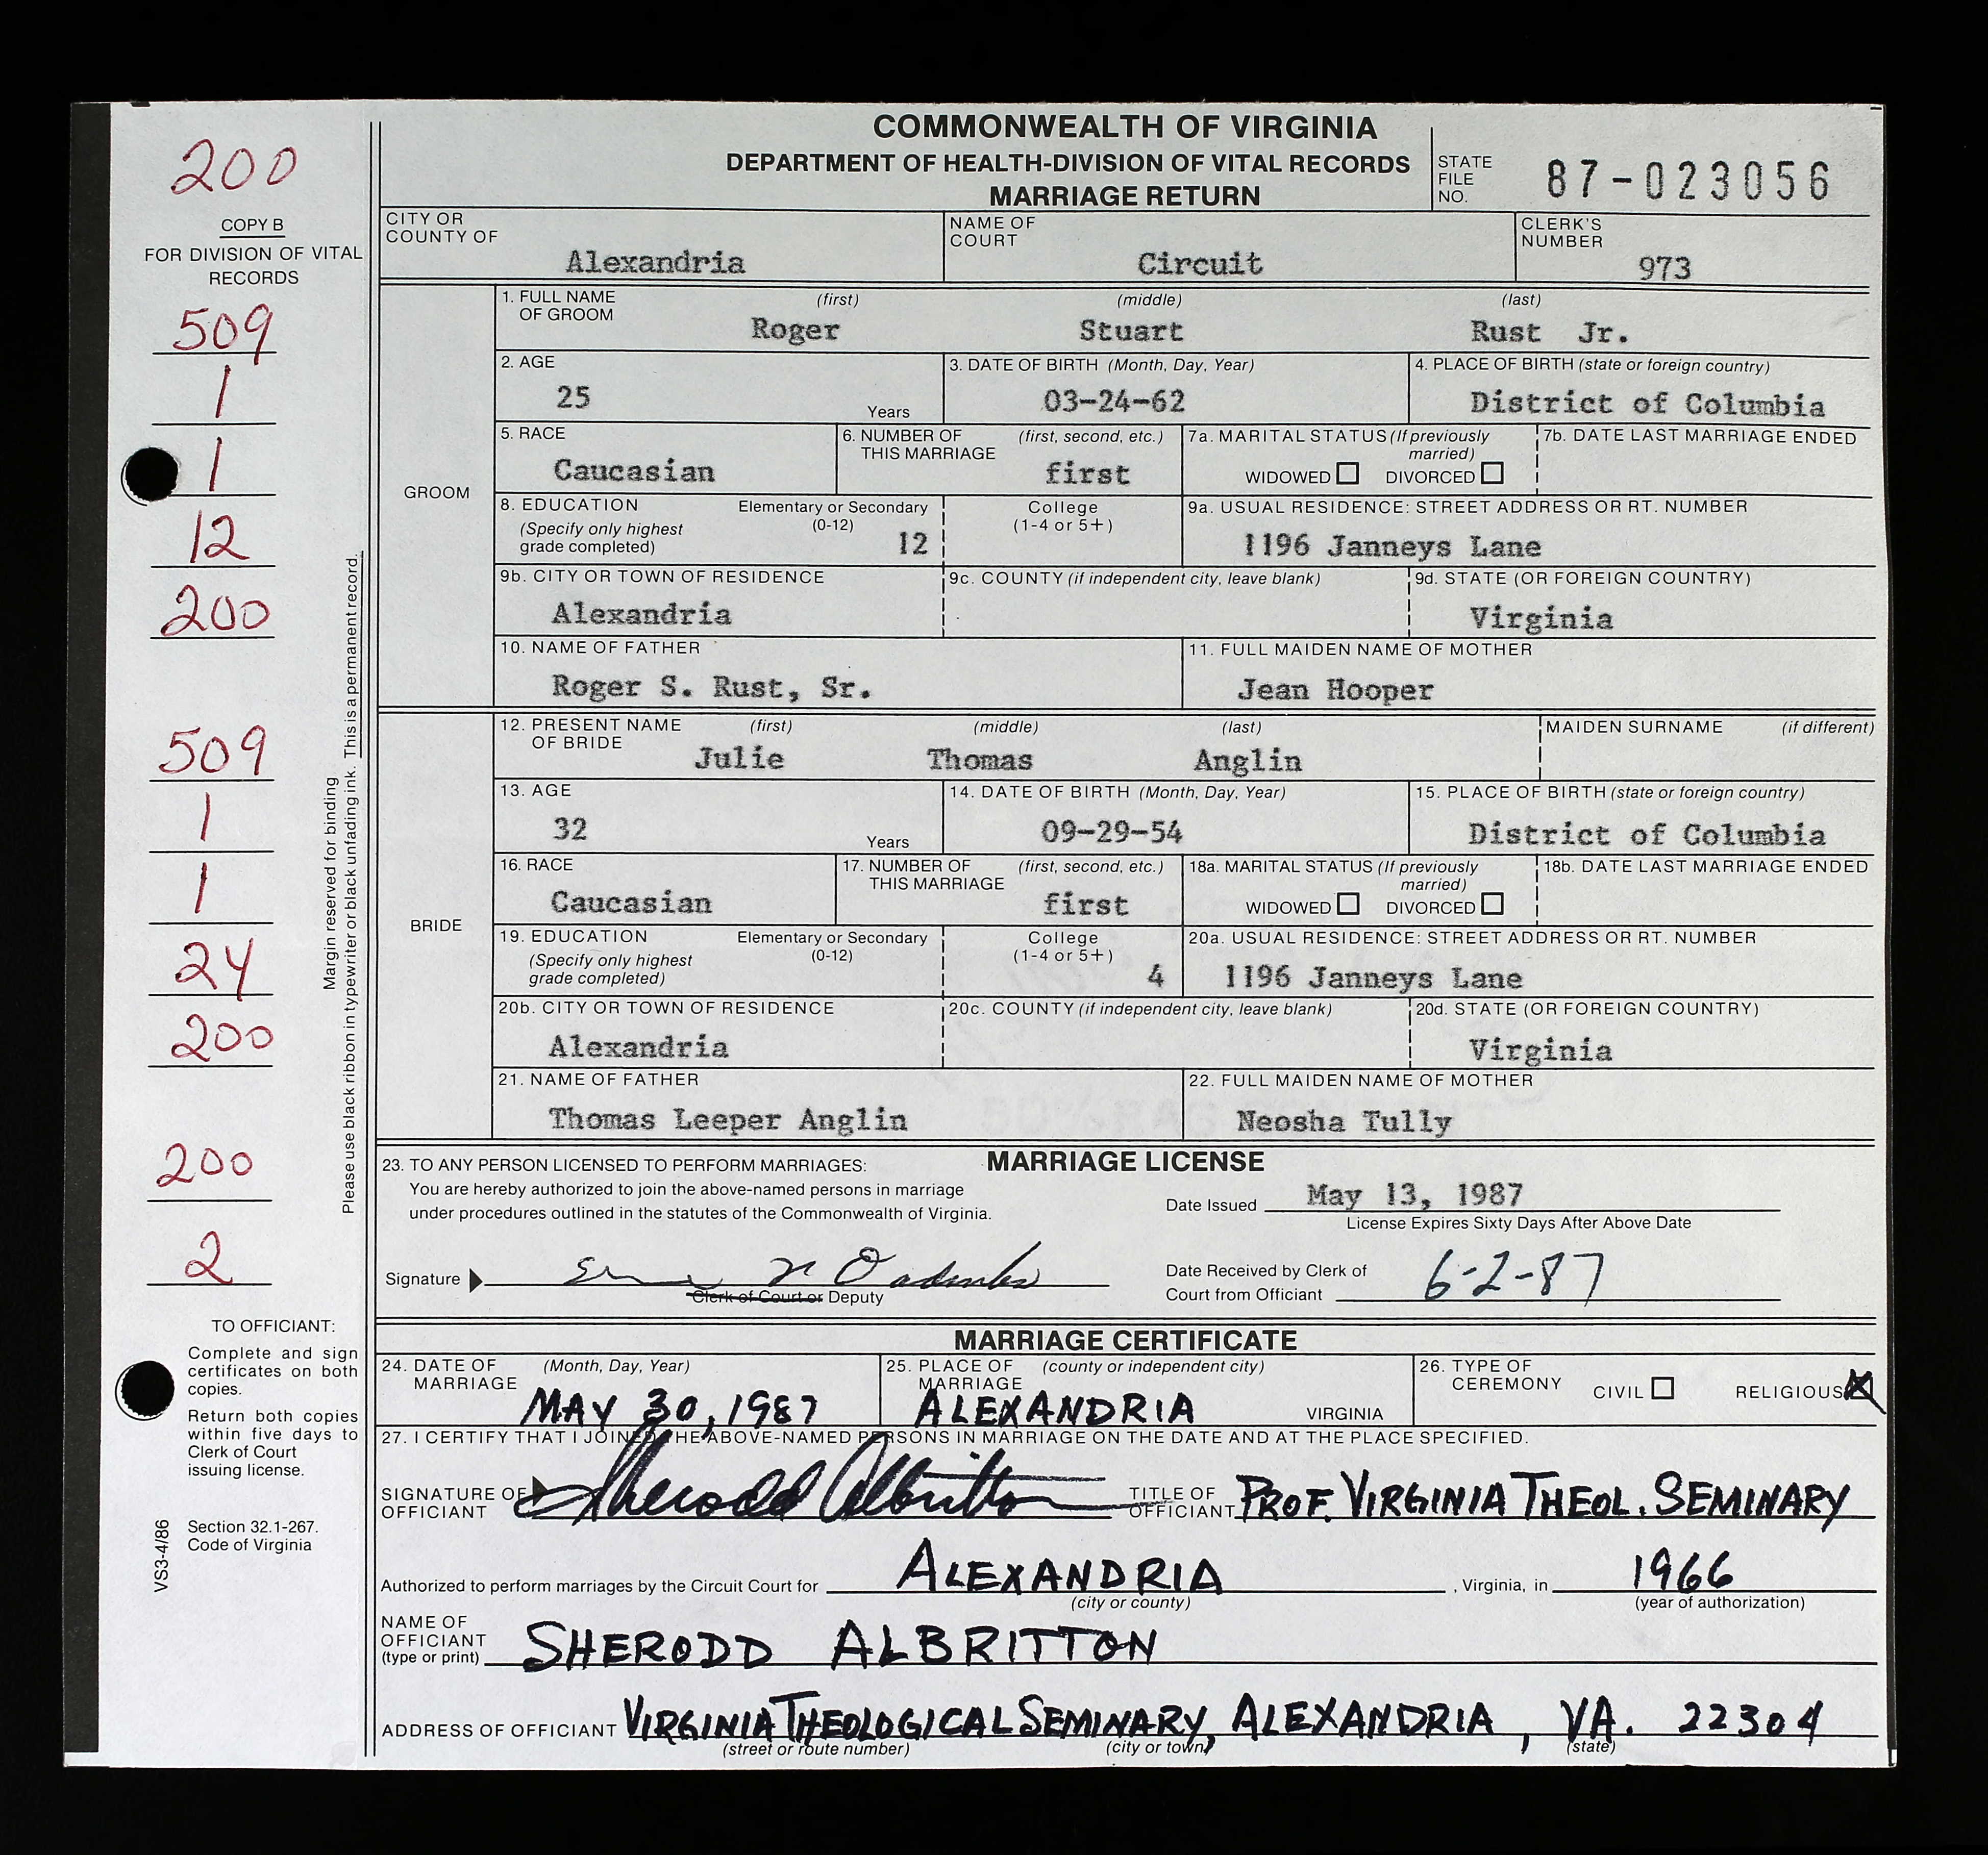 200
COPY B
FOR DIVISION OF VITAL
RECORDS
509
1
1
12
200
509
1
1
24
200
200
2
Margin reserved for binding
Please use black ribbon in typewriter or black unfading ink. This is a permanent record.
TO OFFICIANT:
Complete and sign
certificates on both
copies.
Return both copies
within five days to
Clerk of Court
issuing license.
Section 32.1-267.
Code of Virginia
VS3-4/86
COMMONWEALTH OF VIRGINIA
DEPARTMENT OF HEALTH-DIVISION OF VITAL RECORDS
MARRIAGE RETURN
STATE
FILE
NO.
87-023056
CITY OR
COUNTY OF
Alexandria
NAME OF
COURT
Circuit
CLERK'S
NUMBER
973
GROOM
1. FULL NAME (first) (middle) (last)
OF GROOM
Roger Stuart Rust Jr.
2. AGE
25 Years
3. DATE OF BIRTH (Month, Day, Year)
03-24-62
4. PLACE OF BIRTH (state or foreign country)
District of Columbia
5. RACE
Caucasian
6. NUMBER OF (first, second, etc.)
THIS MARRIAGE
first
7a. MARITAL STATUS (If previously
married)
WIDOWED DIVORCED
7b. DATE LAST MARRIAGE ENDED
8. EDUCATION Elementary or Secondary
(Specify only highest (0-12)
grade completed) 12
College
(1-4 or 5+)
9a. USUAL RESIDENCE: STREET ADDRESS OR RT. NUMBER
1196 Janneys Lane
9b. CITY OR TOWN OF RESIDENCE
Alexandria
9c. COUNTY (if independent city, leave blank)
9d. STATE (OR FOREIGN COUNTRY)
Virginia
10. NAME OF FATHER
Roger S. Rust, Sr.
11. FULL MAIDEN NAME OF MOTHER
Jean Hooper
BRIDE
12. PRESENT NAME (first) (middle) (last)
OF BRIDE
Julie Thomas Anglin
MAIDEN SURNAME (if different)
13. AGE
32 Years
14. DATE OF BIRTH (Month, Day, Year)
09-29-54
15. PLACE OF BIRTH (state or foreign country)
District of Columbia
16. RACE
Caucasian
17. NUMBER OF (first, second, etc.)
THIS MARRIAGE
first
18a. MARITAL STATUS (If previously
married)
WIDOWED DIVORCED
18b. DATE LAST MARRIAGE ENDED
19. EDUCATION Elementary or Secondary
(Specify only highest (0-12)
grade completed)
College
(1-4 or 5+)
4
20a. USUAL RESIDENCE: STREET ADDRESS OR RT. NUMBER
1196 Janneys Lane
20b. CITY OR TOWN OF RESIDENCE
Alexandria
20c. COUNTY (if independent city, leave blank)
20d. STATE (OR FOREIGN COUNTRY)
Virginia
21. NAME OF FATHER
Thomas Leeper Anglin
22. FULL MAIDEN NAME OF MOTHER
Neosha Tully
23. TO ANY PERSON LICENSED TO PERFORM MARRIAGES: MARRIAGE LICENSE
You are hereby authorized to join the above-named persons in marriage
under procedures outlined in the statutes of the Commonwealth of Virginia.
Date Issued May 13, 1987
License Expires Sixty Days After Above Date
Signature
Clerk of Court or Deputy
Date Received by Clerk of
Court from Officiant 6-2-87
MARRIAGE CERTIFICATE
24. DATE OF (Month, Day, Year)
MARRIAGE
MAY 30, 1987
25. PLACE OF (county or independent city)
MARRIAGE
ALEXANDRIA VIRGINIA
26. TYPE OF
CEREMONY CIVIL RELIGIOUS
27. I CERTIFY THAT I JOINED THE ABOVE-NAMED PERSONS IN MARRIAGE ON THE DATE AND AT THE PLACE SPECIFIED.
SIGNATURE OF
OFFICIANT Sherodd Albritton
TITLE OF
OFFICIANT PROF. VIRGINIA THEOL. SEMINARY
Authorized to perform marriages by the Circuit Court for ALEXANDRIA, Virginia, in 1966
(city or county) (year of authorization)
NAME OF
OFFICIANT
(type or print) SHERODD ALBRITTON
ADDRESS OF OFFICIANT VIRGINIA THEOLOGICAL SEMINARY, ALEXANDRIA, VA. 22304
(street or route number) (city or town) (state)